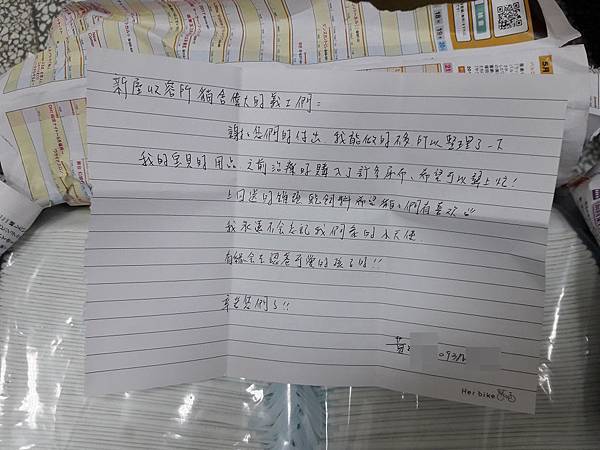 新屋收容所 貓舍偉大的義工們：
謝謝您們的付出 我能做的不多 所以整理了一下
我的寶貝的用品 之前治療時購入了許多 希望可以幫上忙！
上回送的 飼料 希望貓貓們有喜歡
我永遠不會忘記我們家的小天使
有緣會去認養可愛的孩子的！！
辛苦您們了！！
黃
093
Her bike